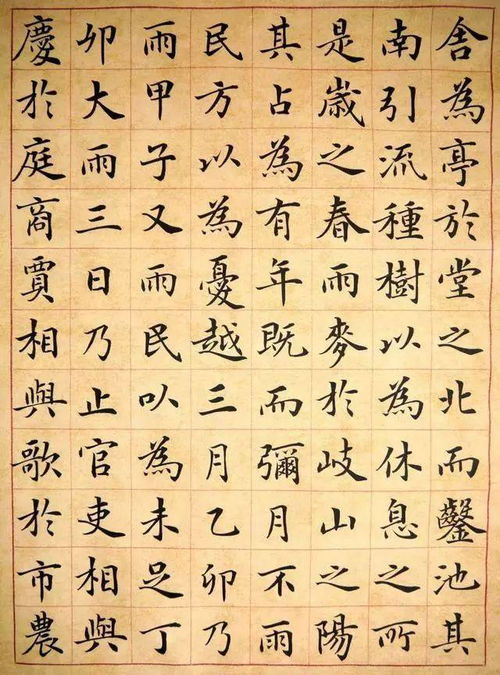 舍為亭於堂之北而鑿池其
南引流種樹以為休息之所
是歲之春雨麥於岐山之陽
其占為有年既而彌月不雨
民方以為憂越三月乙卯乃
雨甲子又雨民以為未足丁
卯大雨三日乃止官吏相與
慶於庭商賈相與歌於市農